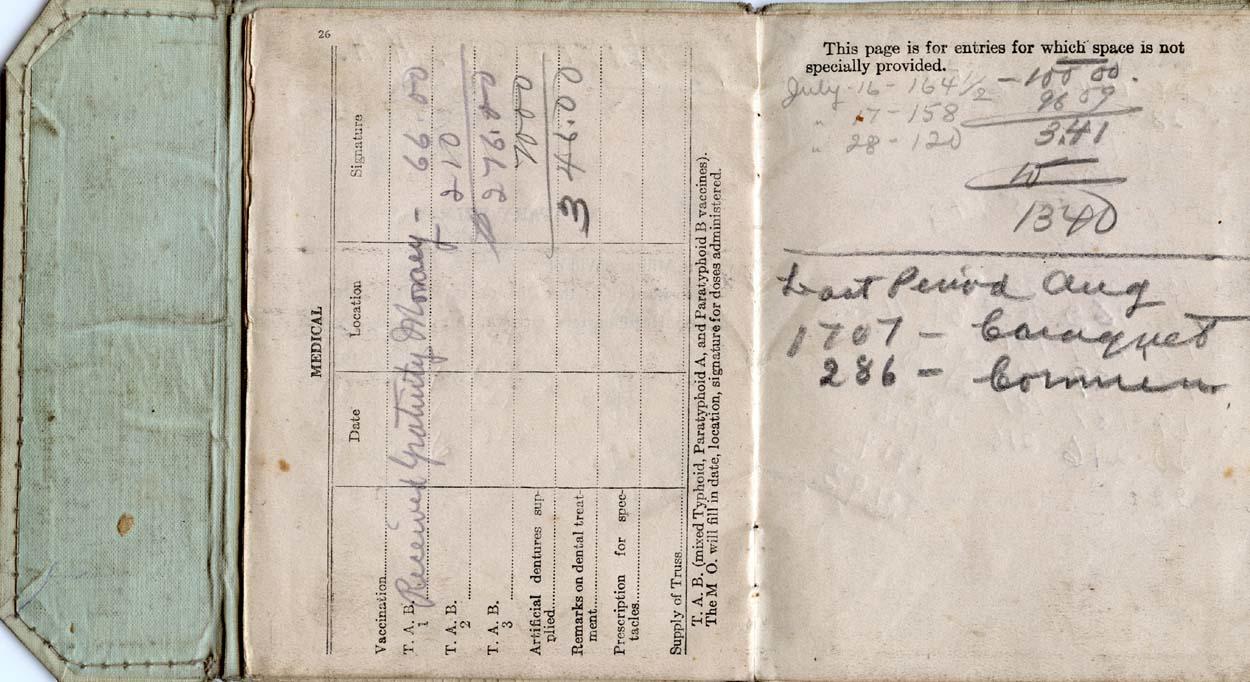 26
MEDICAL
Date Location Signature
Vaccination
T. A. B. 1 Received Gratuity Money - 66.00
T. A. B. 2 210
T. A. B. 3 276.00
Artificial dentures sup-
plied 70.00
Remarks on dental treat-
ment 346.00
Prescription for spec-
tacles
Supply of Truss
T. A. B. (mixed Typhoid, Paratyphoid A, and Paratyphoid B vaccines).
The M O. will fill in date, location, signature for doses administered.
This page is for entries for which space is not
specially provided.
July 16 - 164 1/2 - 100 00.
" 17 - 158 96 59
" 28 - 120 3.41
10
1340
Last Period Aug
1707 - Caraquet
286 -